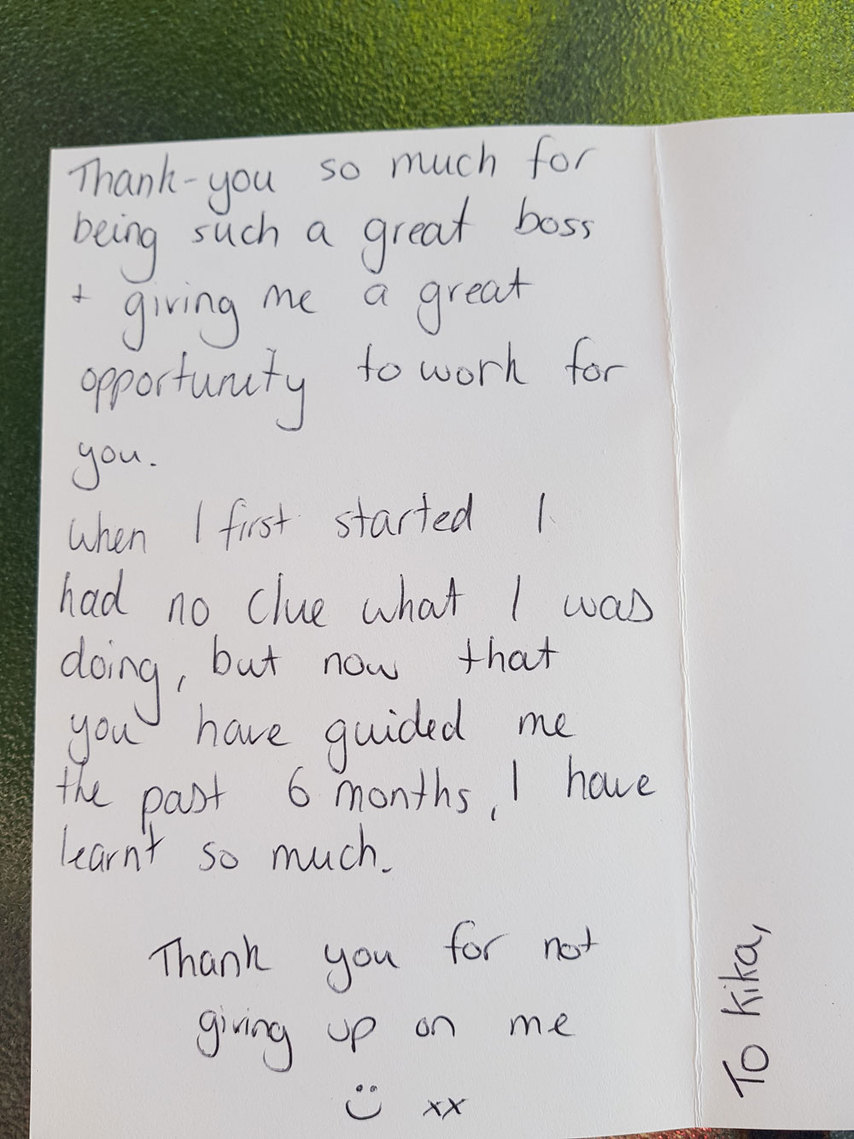 Thank-you so much for
being such a great boss
+ giving me a great
opportunity to work for
you.
When I first started I
had no clue what I was
doing, but now that
you have guided me
the past 6 months, I have
learnt so much.
Thank you for not
giving up on me
☺ xx
To Kika,